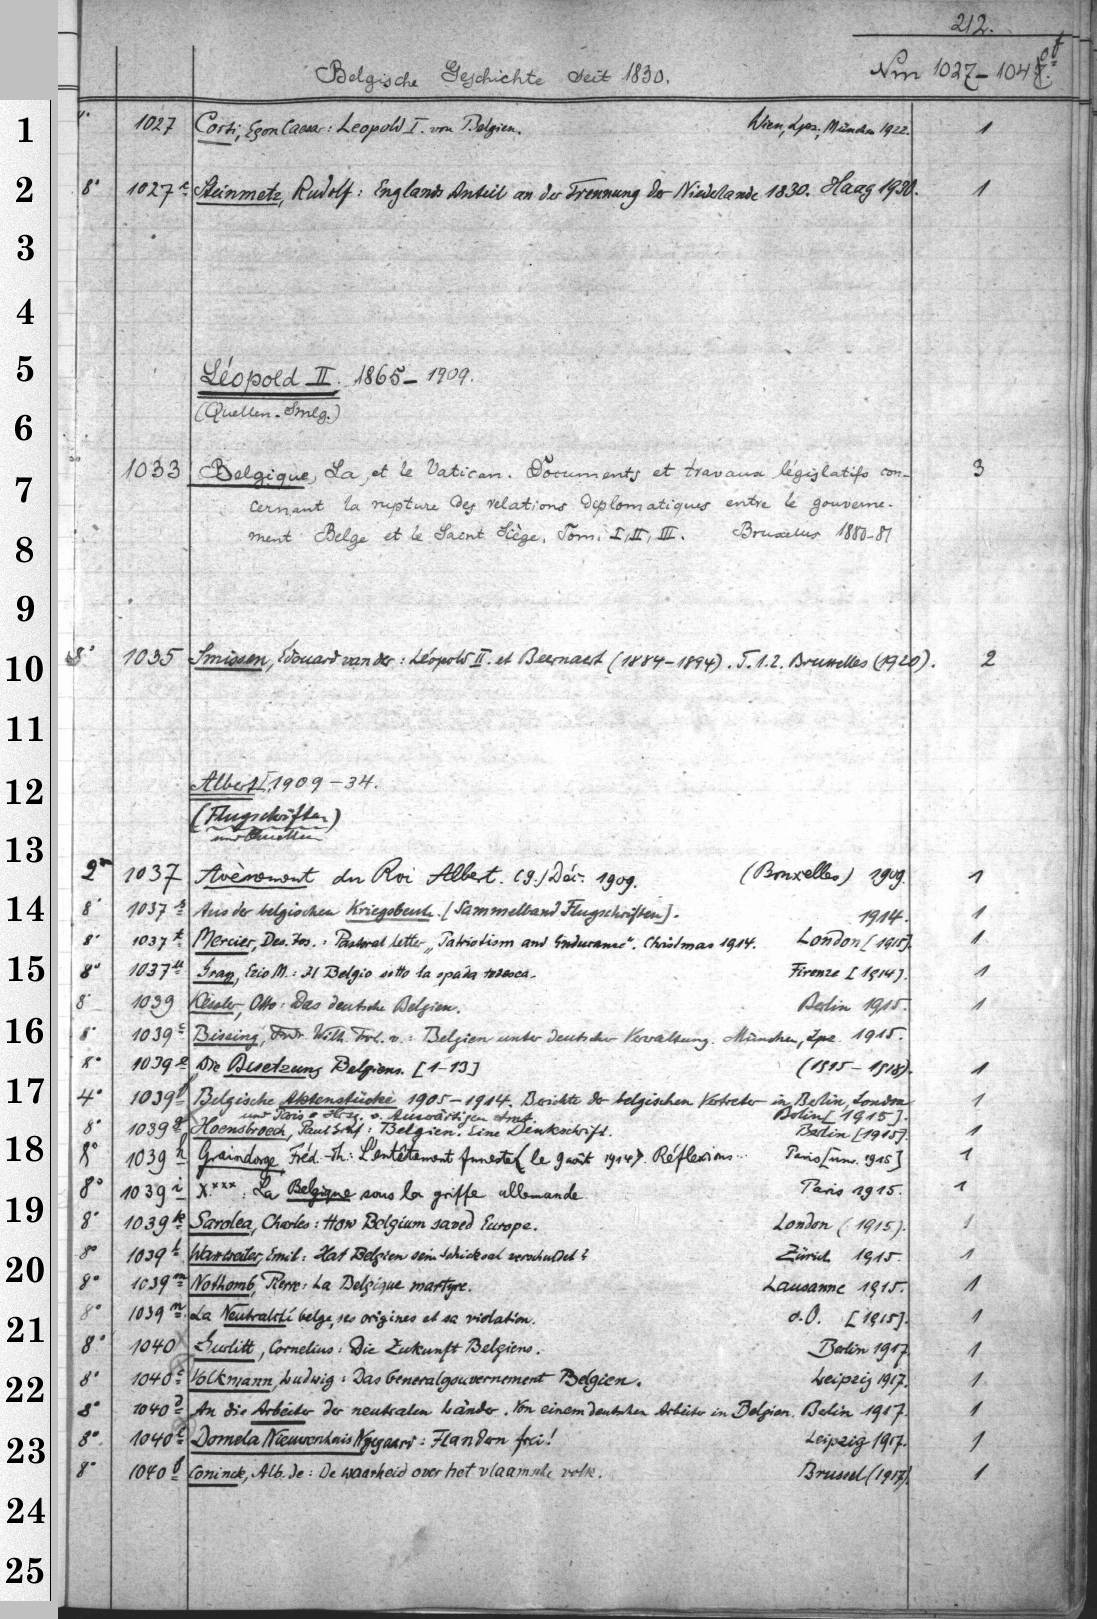 212.
Belgische Geschichte seit 1830. Nrn 1027-1047.
1 8° 1027 Corti, Egon Caesar: Leopold I. von Belgien. Wien, Lpz., München 1922. 1
2 8° 1027 Steinmetz, Rudolf: Englands Anteil an der Trennung der Niederlande 1830. Haag 1930. 1
3
4
5 Léopold II. 1865-1909.
6 (Quellen-Smlg.)
7 1033 Belgique, La, et le Vatican. Documents et travaux législatifs con- 3
cernant la rupture des relations diplomatiques entre le gouverne-
8 ment Belge et le Saint Siège. Tom. I, II, III. Bruxelles 1880-81
9
10 8° 1035 Smissen, Édouard van der: Léopold II. et Beernaert (1884-1894). T. 1.2. Bruxelles (1920). 2
11
12 Albert I. 1909-34.
(Flugschriften)
und Quellen
13
2° 1037 Avènement du Roi Albert. (9.) Déc. 1909. (Bruxelles) 1909. 1
14 8° 1037 s Aus der belgischen Kriegsbeute. [Sammelband Flugschriften]. 1914. 1
8° 1037 t Mercier, Des. Jos.: Pastoral letter „Patriotism and Endurance". Christmas 1914. London [1915]. 1
15 8° 1037 u Gray, Ezio M.: Il Belgio sotto la spada tedesca. Firenze [1914]. 1
8° 1039 Kessler, Otto: Das deutsche Belgien. Berlin 1915. 1
16 8° 1039 c Bissing, Frdr. Wilh. Frh. v.: Belgien unter deutscher Verwaltung. München, Lpz. 1915.
8° 1039 e Die Besetzung Belgiens. [1-13] (1915-1918). 1
17 4° 1039 f Belgische Aktenstücke 1905-1914. Berichte der belgischen Vertreter in Berlin, London 1
und Paris. Hrsg. v. Auswärtigen Amt. Berlin [1915].
8° 1039 g Hoensbroech, Paul Graf: Belgien. Eine Denkschrift. Berlin [1915]. 1
18 8° 1039 h Graindorge, Fréd.-Th.: L'entêtement funeste (le 9 août 1914). Réflexions... Paris [um 1915] 1
8° 1039 i X.***: La Belgique sous la griffe allemande Paris 1915. 1
19 8° 1039 k Sarolea, Charles: How Belgium saved Europe. London (1915). 1
8° 1039 l Waxweiler, Emil: Hat Belgien sein Schicksal verschuldet? Zürich 1915. 1
20 8° 1039 m Nothomb, Pierre: La Belgique martyre. Lausanne 1915. 1
8° 1039 n La Neutralité belge, ses origines et sa violation. o.O. [1915]. 1
21 8° 1040 Gurlitt, Cornelius: Die Zukunft Belgiens. Berlin 1917 1
22 8° 1040 c Volkmann, Ludwig: Das Generalgouvernement Belgien. Leipzig 1917. 1
8° 1040 d An die Arbeiter der neutralen Länder. Von einem deutschen Arbeiter in Belgien. Berlin 1917. 1
23 8° 1040 e Domela Nieuwenhuis Nyegaard: Flandern frei! Leipzig 1917. 1
8° 1040 f Coninck, Alb. de: De waarheid over het vlaamsche volk. Brussel (1917). 1
24
25